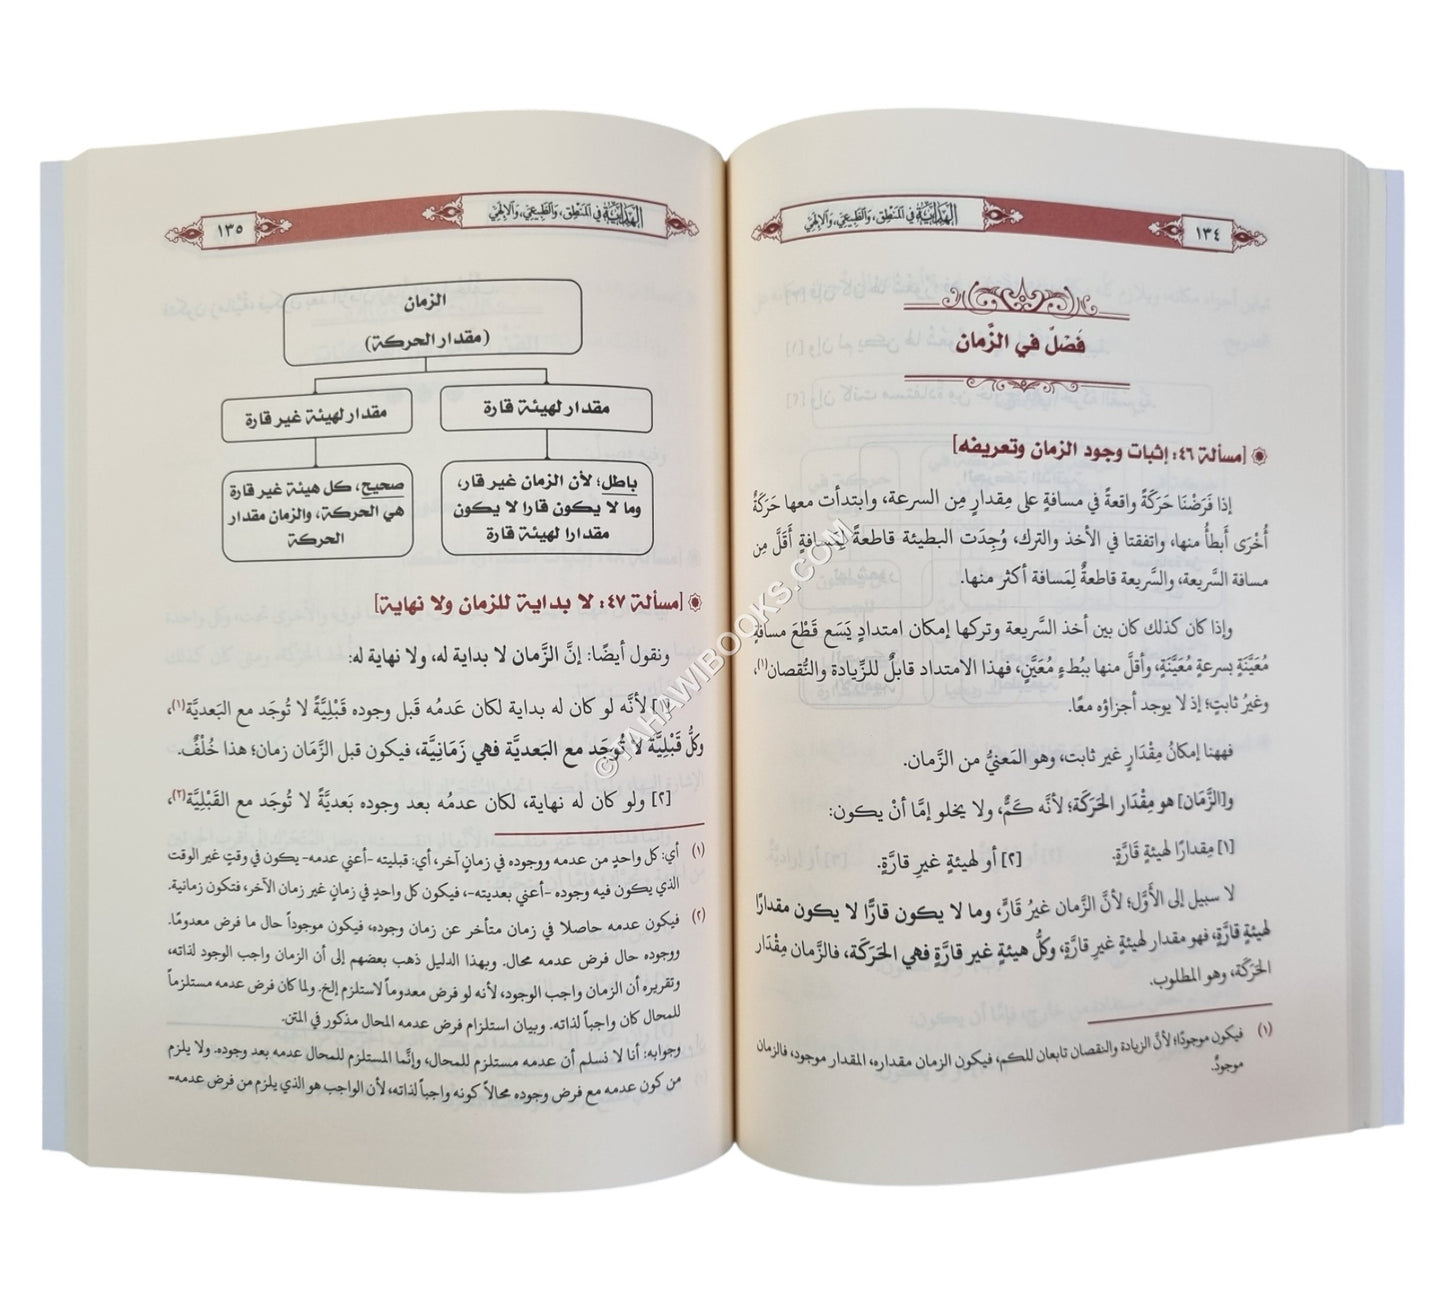 ١٣٤
الهداية في المنطق، والطبيعي، والإلهي
فَصْلٌ في الزَّمان
[مسألة ٤٦: إثبات وجود الزمان وتعريفه]
إذا فَرَضْنَا حَرَكَةً واقعةً في مسافةٍ على مِقدارٍ مِن السرعة، وابتدأت معها حَرَكَةٌ
أُخْرَى أبطأُ منها، واتفقتا في الأخذ والترك، وُجِدَت البطيئة قاطعةً لِمسافةٍ أَقَلَّ مِن
مسافة السَّريعة، والسَّريعة قاطعةٌ لِمَسافة أكثر منها.
وإذا كان كذلك كان بين أخذ السَّريعة وتركها إمكان امتدادٍ يَسَع قَطْعَ مسافةٍ
مُعَيَّنَةٍ بسرعةٍ مُعَيَّنَةٍ، وأقلَّ منها ببُطءٍ مُعَيَّنٍ، فهذا الامتداد قابلٌ للزِّيادة والنُّقصان(١)،
وغيرُ ثابتٍ؛ إذ لا يوجد أجزاؤه معًا.
فههنا إمكانُ مِقْدَارٍ غير ثابت، وهو المَعنيُّ من الزَّمان.
و[الزَّمَان] هو مِقْدَار الحَرَكَة؛ لأنَّه كَمٌّ، ولا يخلو إمَّا أنْ يكون:
[١] مِقدارًا لهيئةٍ قَارَّةٍ. [٢] أو لهيئةٍ غيرِ قارَّةٍ.
لا سبيل إلى الأَوَّل؛ لأنَّ الزَّمان غيرُ قَارٍّ، وما لا يكون قارًّا لا يكون مقدارًا
لهيئةٍ قارَّةٍ، فهو مقدار لهيئةٍ غيرِ قارَّةٍ، وكلُّ هيئةٍ غير قارَّةٍ فهي الحَرَكَة، فالزَّمان مِقْدَار
الحَرَكَة، وهو المطلوب.
(١) فيكون موجودًا؛ لأنَّ الزيادة والنقصان تابعان للكم، فيكون الزمان مقداره، المقدار موجود، فالزمان
موجودٌ.
الهداية في المنطق، والطبيعي، والإلهي
١٣٥
الزمان
(مقدار الحركة)
مقدار لهيئة قارة
مقدار لهيئة غير قارة
باطل؛ لأن الزمان غير قار،
وما لا يكون قارا لا يكون
مقدارا لهيئة قارة
صحيح، كل هيئة غير قارة
هي الحركة، والزمان مقدار
الحركة
[مسألة ٤٧: لا بداية للزمان ولا نهاية]
ونقول أيضًا: إنَّ الزَّمان لا بداية له، ولا نهاية له:
[١] لأنَّه لو كان له بداية لكان عَدمُه قَبل وجوده قَبْلِيَّةً لا تُوجَد مع البَعديَّة(١)،
وكلُّ قَبْلِيَّة لا تُوجَد مع البَعديَّة فهي زَمَانِيَّة، فيكون قبل الزَّمَان زمان؛ هذا خُلْفٌ.
[٢] ولو كان له نهاية، لكان عدمُه بعد وجوده بَعديَّةً لا تُوجَد مع القَبْلِيَّة(٢)،
(١) أي: كل واحدٍ من عدمه ووجوده في زمانٍ آخر، أي: قبليته -أعني عدمه- يكون في وقتٍ غير الوقت
الذي يكون فيه وجوده -أعني بعديته-، فيكون كل واحدٍ في زمانٍ غير زمان الآخر، فتكون زمانية.
(٢) فيكون عدمه حاصلا في زمان متأخر عن زمان وجوده، فيكون موجوداً حال ما فرض معدومًا.
ووجوده حال فرض عدمه محال. وبهذا الدليل ذهب بعضهم إلى أن الزمان واجب الوجود لذاته،
وتقريره أن الزمان واجب الوجود، لأنه لو فرض معدوماً لاستلزم إلخ. ولما كان فرض عدمه مستلزماً
للمحال كان واجباً لذاته. وبيان استلزام فرض عدمه المحال مذكور في المتن.
وجوابه: أنا لا نسلم أن عدمه مستلزم للمحال، وإنَّما المستلزم للمحال عدمه بعد وجوده. ولا يلزم
من كون عدمه مع فرض وجوده محالاً كونه واجباً لذاته، لأن الواجب هو الذي يلزم من فرض عدمه=
©TAHAWIBOOKS.COM